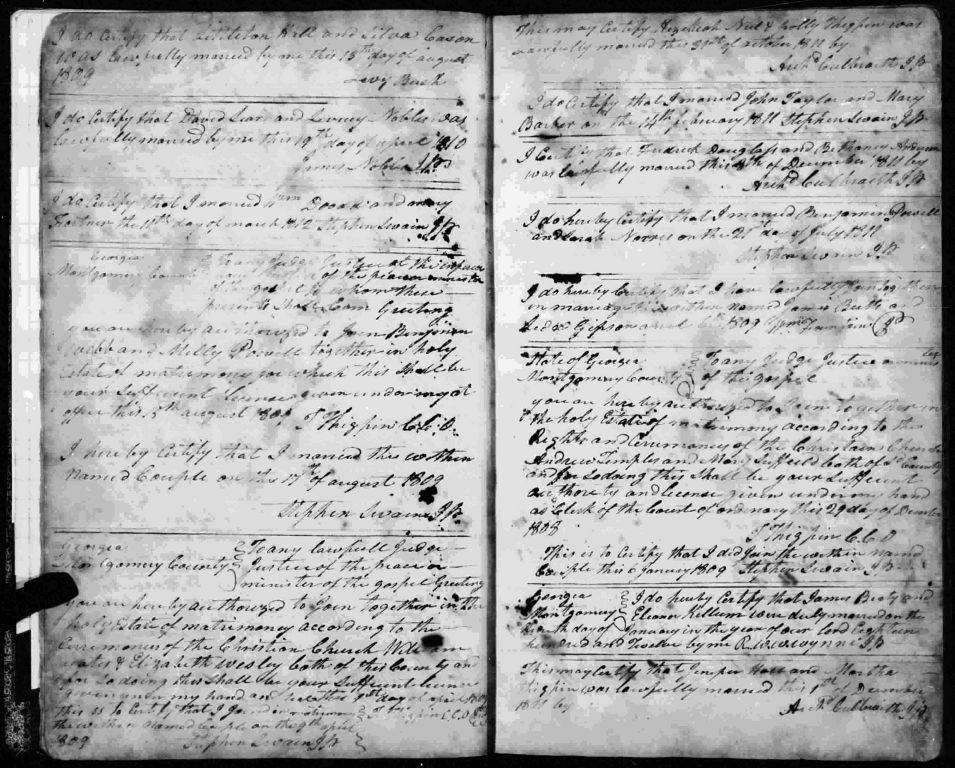 I do Certify that Littleton Hill and Silvea Eason
was Lawfully married by me this 15th day of august
1809
Levy Bush
I do Certify that David Lear and Levicy Nobles was
lawfully married by me this 19th day of april 1810
James Nobles J.P.
I do Certify that I married Wm and mary
the 11th day of march 1812 Stephen Swain J.P.
Georgia
Montgomery County To any Judge Justice of the
of the peace or minister
of the gospel to whom these
presents Shall Come Greeting
you are here by authorized to Join Benjamin
Webb and Milly Powell together in holy
Estate of matrimony for which this Shall be
your Sufficient License given under my at
office this 5th august 1809 T Thigpin C.C.O.
I hereby Certify that I married this within
Named Couple on the 17th of august 1809
Stephen Swain J.P.
Georgia To any lawfull Judge
Montgomery County Justice of the peace or
minister of the gospel Greeting
you are hereby authorized to Join together in the
holy Estate of matrimony according to the
Cerimonies of the Christian Church William
& Elizabeth Wesley both of this County and
for So doing this Shall be your Sufficient licence
given under my hand an this day
this is to Certify that I Joined
the within Named Couple on the 9th
1809
Stephen Swain J.P.
This may Certify Hezekiah Neel & Polly Thigpin was
Lawfully married this 31st of october 1811 by
Archd Culbreath J.P.
I do Certify that I married John Taylor and Mary
Barber on the 14th february 1811 Stephen Swain J.P.
I Certify that Fredrick Douglass and Bethaney Anderson
was lawfully married this 4th of December 1811 by
Archd Culbreath J.P.
I do hereby Certify that I married Benjamin Powell
and Sarah Norris on the 21st day of July 1811
Stephen Swain J.P.
I do hereby Certify that I have lawfully
in marriage this within named James and
Gipson 1809
State of Georgia To any Judge Justice or minis
Montgomery County of the Gospel
you are here by authorized to Join together in
the holy Estate of matrimony according to the
Rights and Cerimoney of the Christain Church
Andrew Temples and Mary both of sd County
and for So doing this Shall be your Sufficient
authority and licence given under my hand
as Clerk of the Court of ordinary this 29 day of Decem
1808
T Thigpin C.C.O
This is to Certify that I did Join the within named
Couple this 6 January 1809 Stephen Swain J.P.
Georgia I do hereby Certify that James Beaty and
Montgomery Eleanor Kellum were duly married on the
day of January in the year of our lord eighteen
hundred and Twelve by me R. W. Wynne J.P.
This may Certify that Juniper Hall and Martha
Thigpin was lawfully married this 1st of December
1811 by
Archd Culbreath J.P.